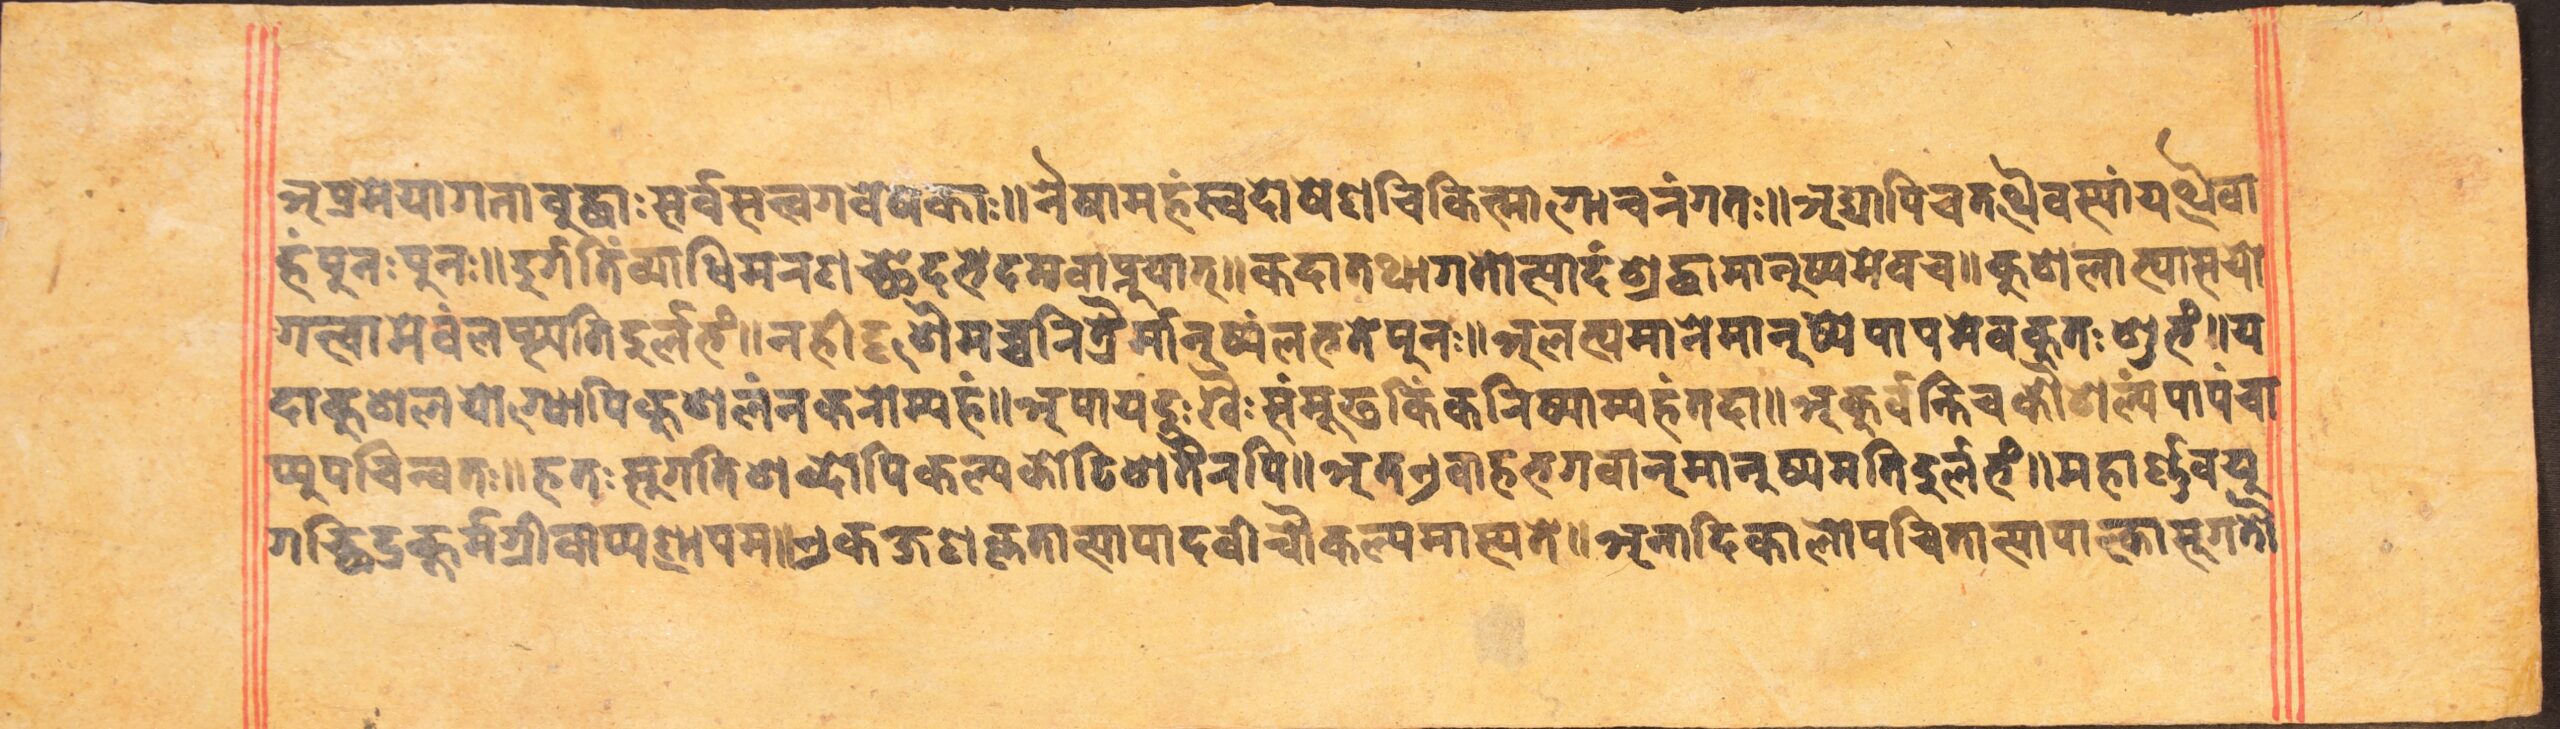 अप्रमेयागता बुद्धाः सर्वसत्त्वगवेषकाः॥ नैषामहं स्वदोषेण चिकित्सागोचरं गतः॥ अद्यापि च तथैव स्यां यथैवा
हं पुनः पुनः॥ दुर्गतिं व्याधिमरणच्छेदभेदमवाप्नुयात्॥ कदा तथागतोत्पादं श्रद्धामानुष्यमेव च॥ कुशलाभ्यासयो
गत्वामेवं लप्स्यति दुर्लभं॥ नहीदृशैमच्चरित्रैर्मानुष्यं लभते पुनः॥ अलभ्यमाने मानुष्ये पापमेव कुतः शुभं॥ य
दा कुशलयोग्यापि कुशलं न करोम्यहं॥ अपायदुःखैः संमूढ किं करिष्याम्यहं तदा॥ अकुर्वन्ति च कौशल्यं पापं चा
प्युपचिन्वतः॥ हतः सुगतिशब्दोपि कल्पकोटिशतैरपि॥ अत एवाह भगवान् मानुष्यमतिदुर्लभं॥ महार्ण्णवयु
गच्छिद्रकुर्मग्रीवाप्यश्रापम॥ एकक्षणकृतात्पापादवीचौ कल्पमास्यते॥ अनादिकालोपचितात्पापात्का सुगतौ